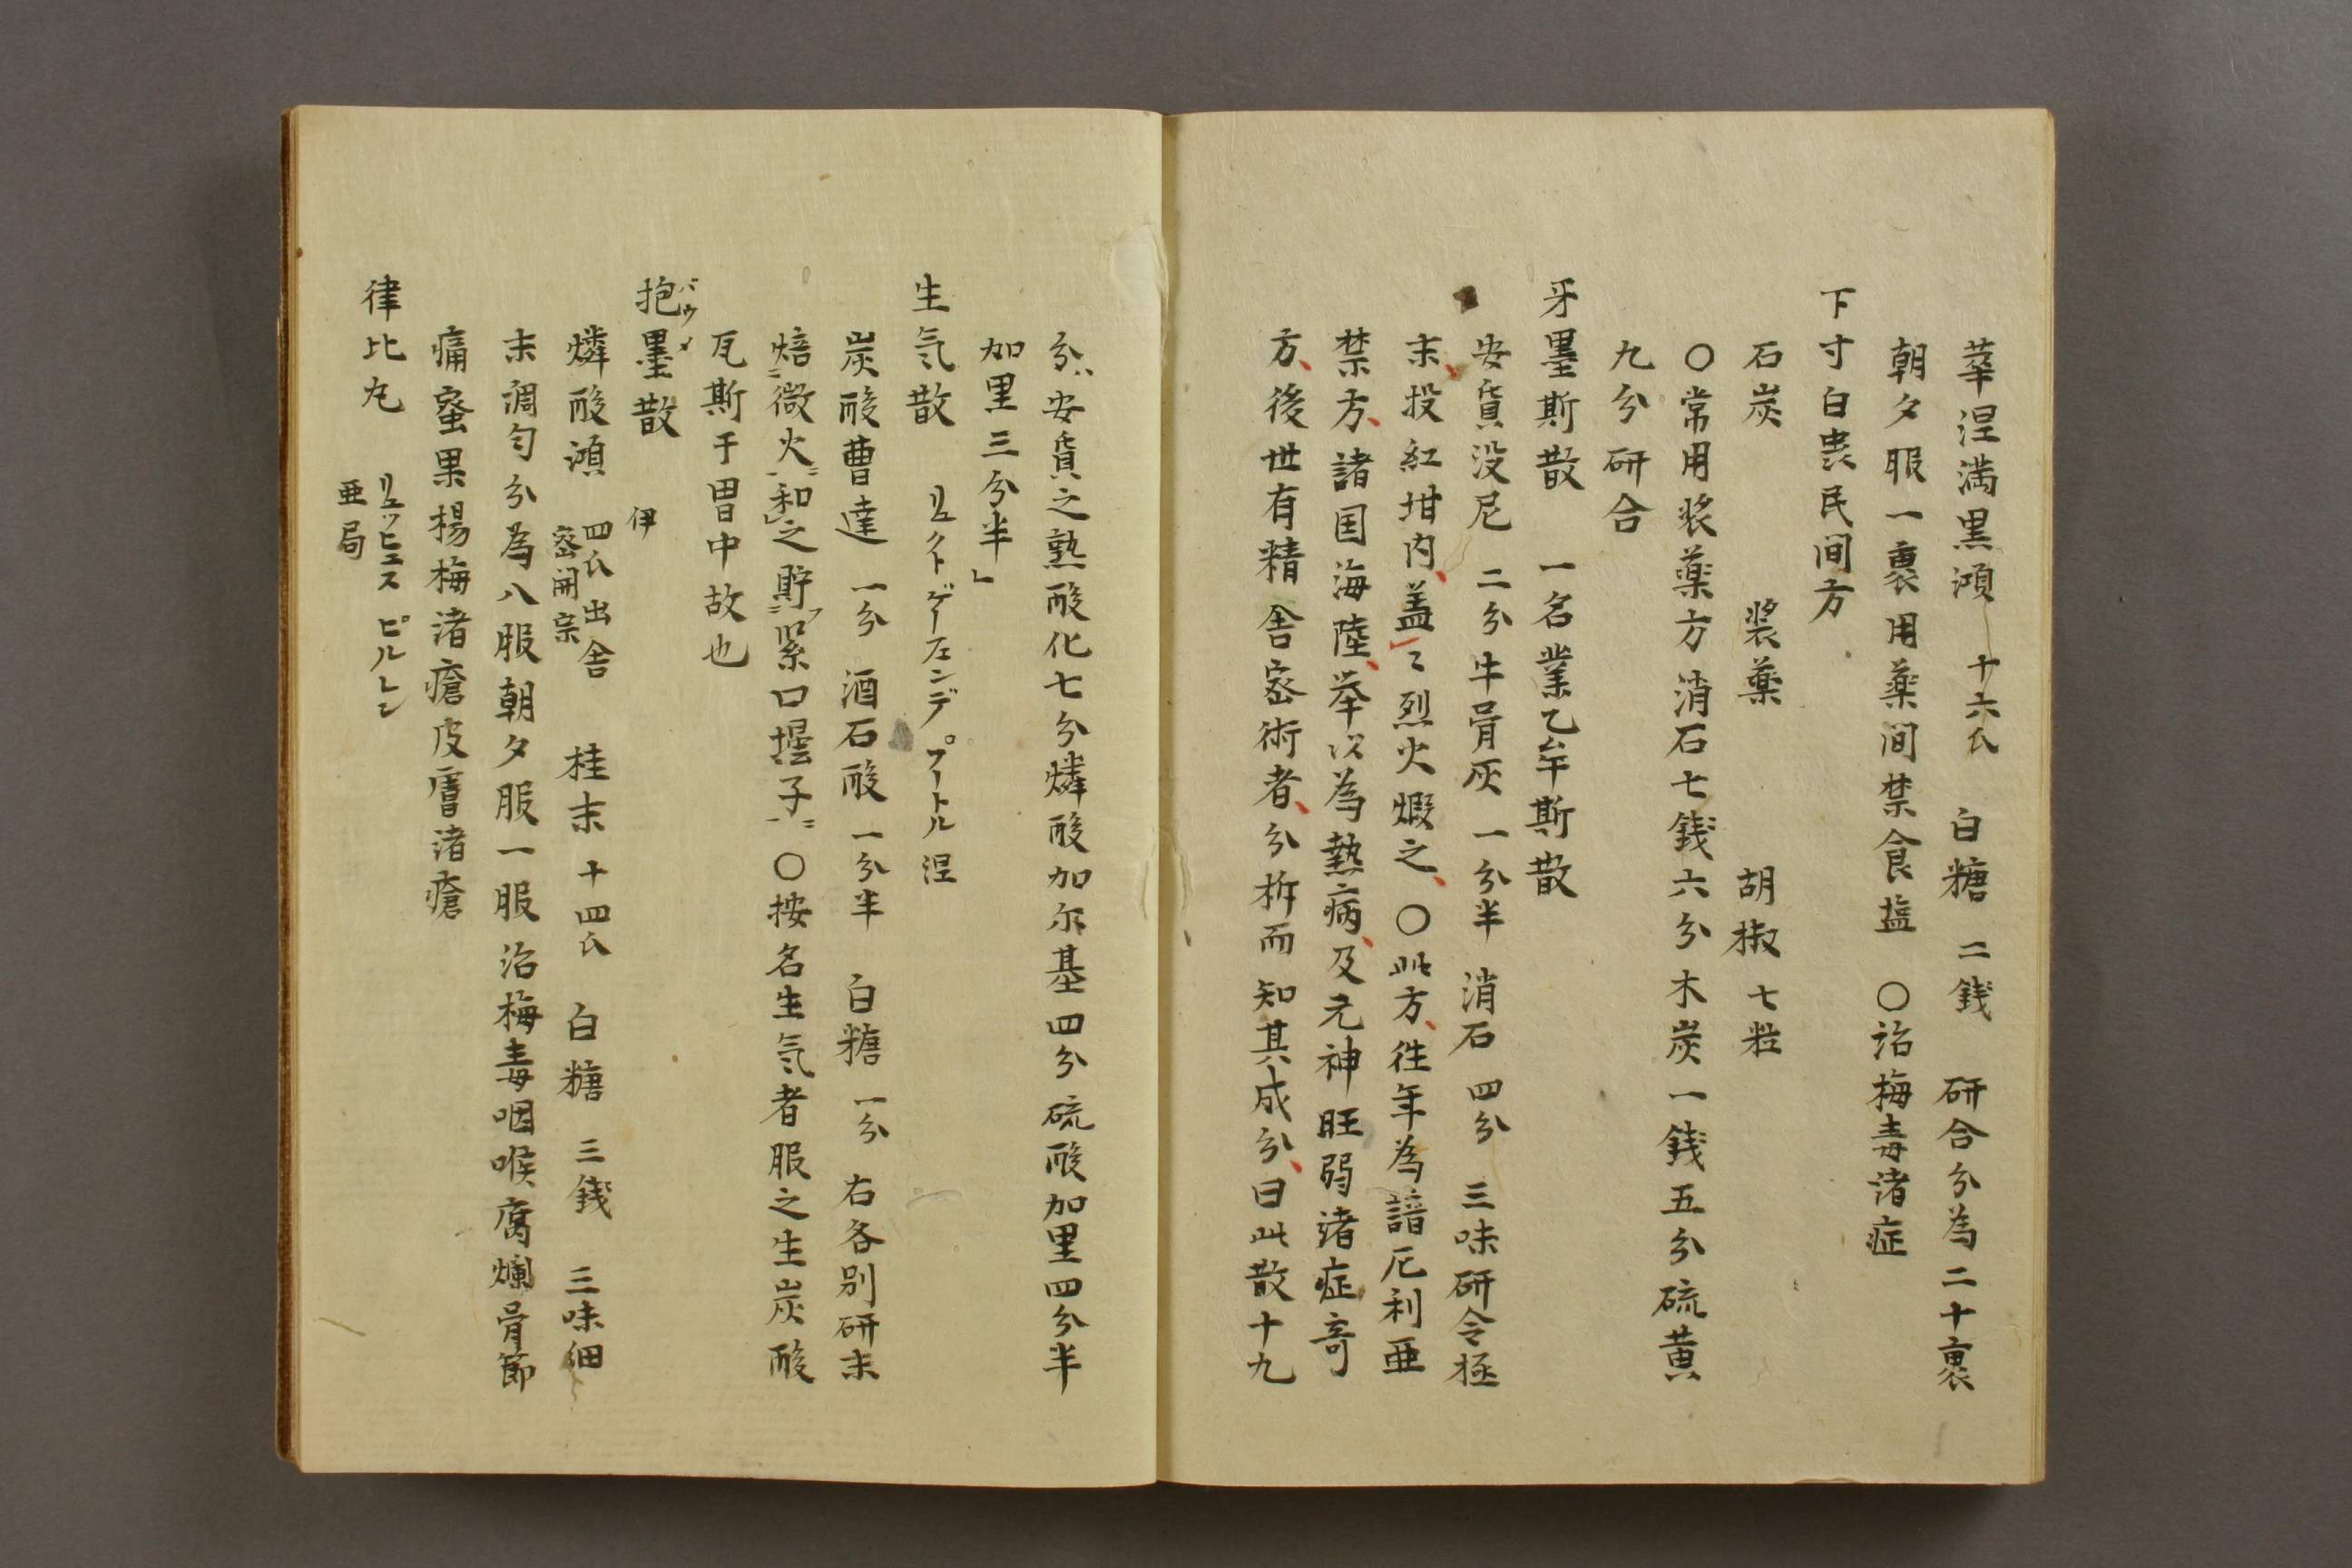 莘涅満黒澒 十六氏 白糖 二銭 研合分為二十裹
朝夕服一裹用薬间禁食塩 〇治梅毒诸症
下寸白虫民间方
石炭 裝薬 胡椒 七粒
〇常用裝薬方消石七銭六分木炭一銭五分硫黄
九分研合
牙墨斯散 一名業乙牟斯散
安質没尼 二分牛骨灰 一分半 消石 四分 三味研令极
末、投紅坩内、盖」々烈火煆之、〇此方、往年為諳厄利亜
禁方、諸国海陸、举以為熱病、及元神旺弱诸症奇
方、後世有精舎密術者、分析而知其成分、曰此散十九
分、安質之熟酸化七分燐酸加尓基四分硫酸加里四分半
加里三分半」
生気散 リュクトゲーフェンデ プートル 涅
炭酸曹達 一分 酒石酸 一分半 白糖 一分 右各別研末
焙微火和之貯緊口壜子 〇按名生気者服之生炭酸
瓦斯于胃中故也
抱墨散 バウメ 伊
燐酸澒 四氏出舎密開宗 桂末 十四氏 白糖 三銭 三味细
末調匀分為八服朝夕服一服治梅毒咽喉腐爛骨節
痛蜜果楊梅诸瘡皮膚诸瘡
律比丸 リュッヒェス ピルレン 亜局